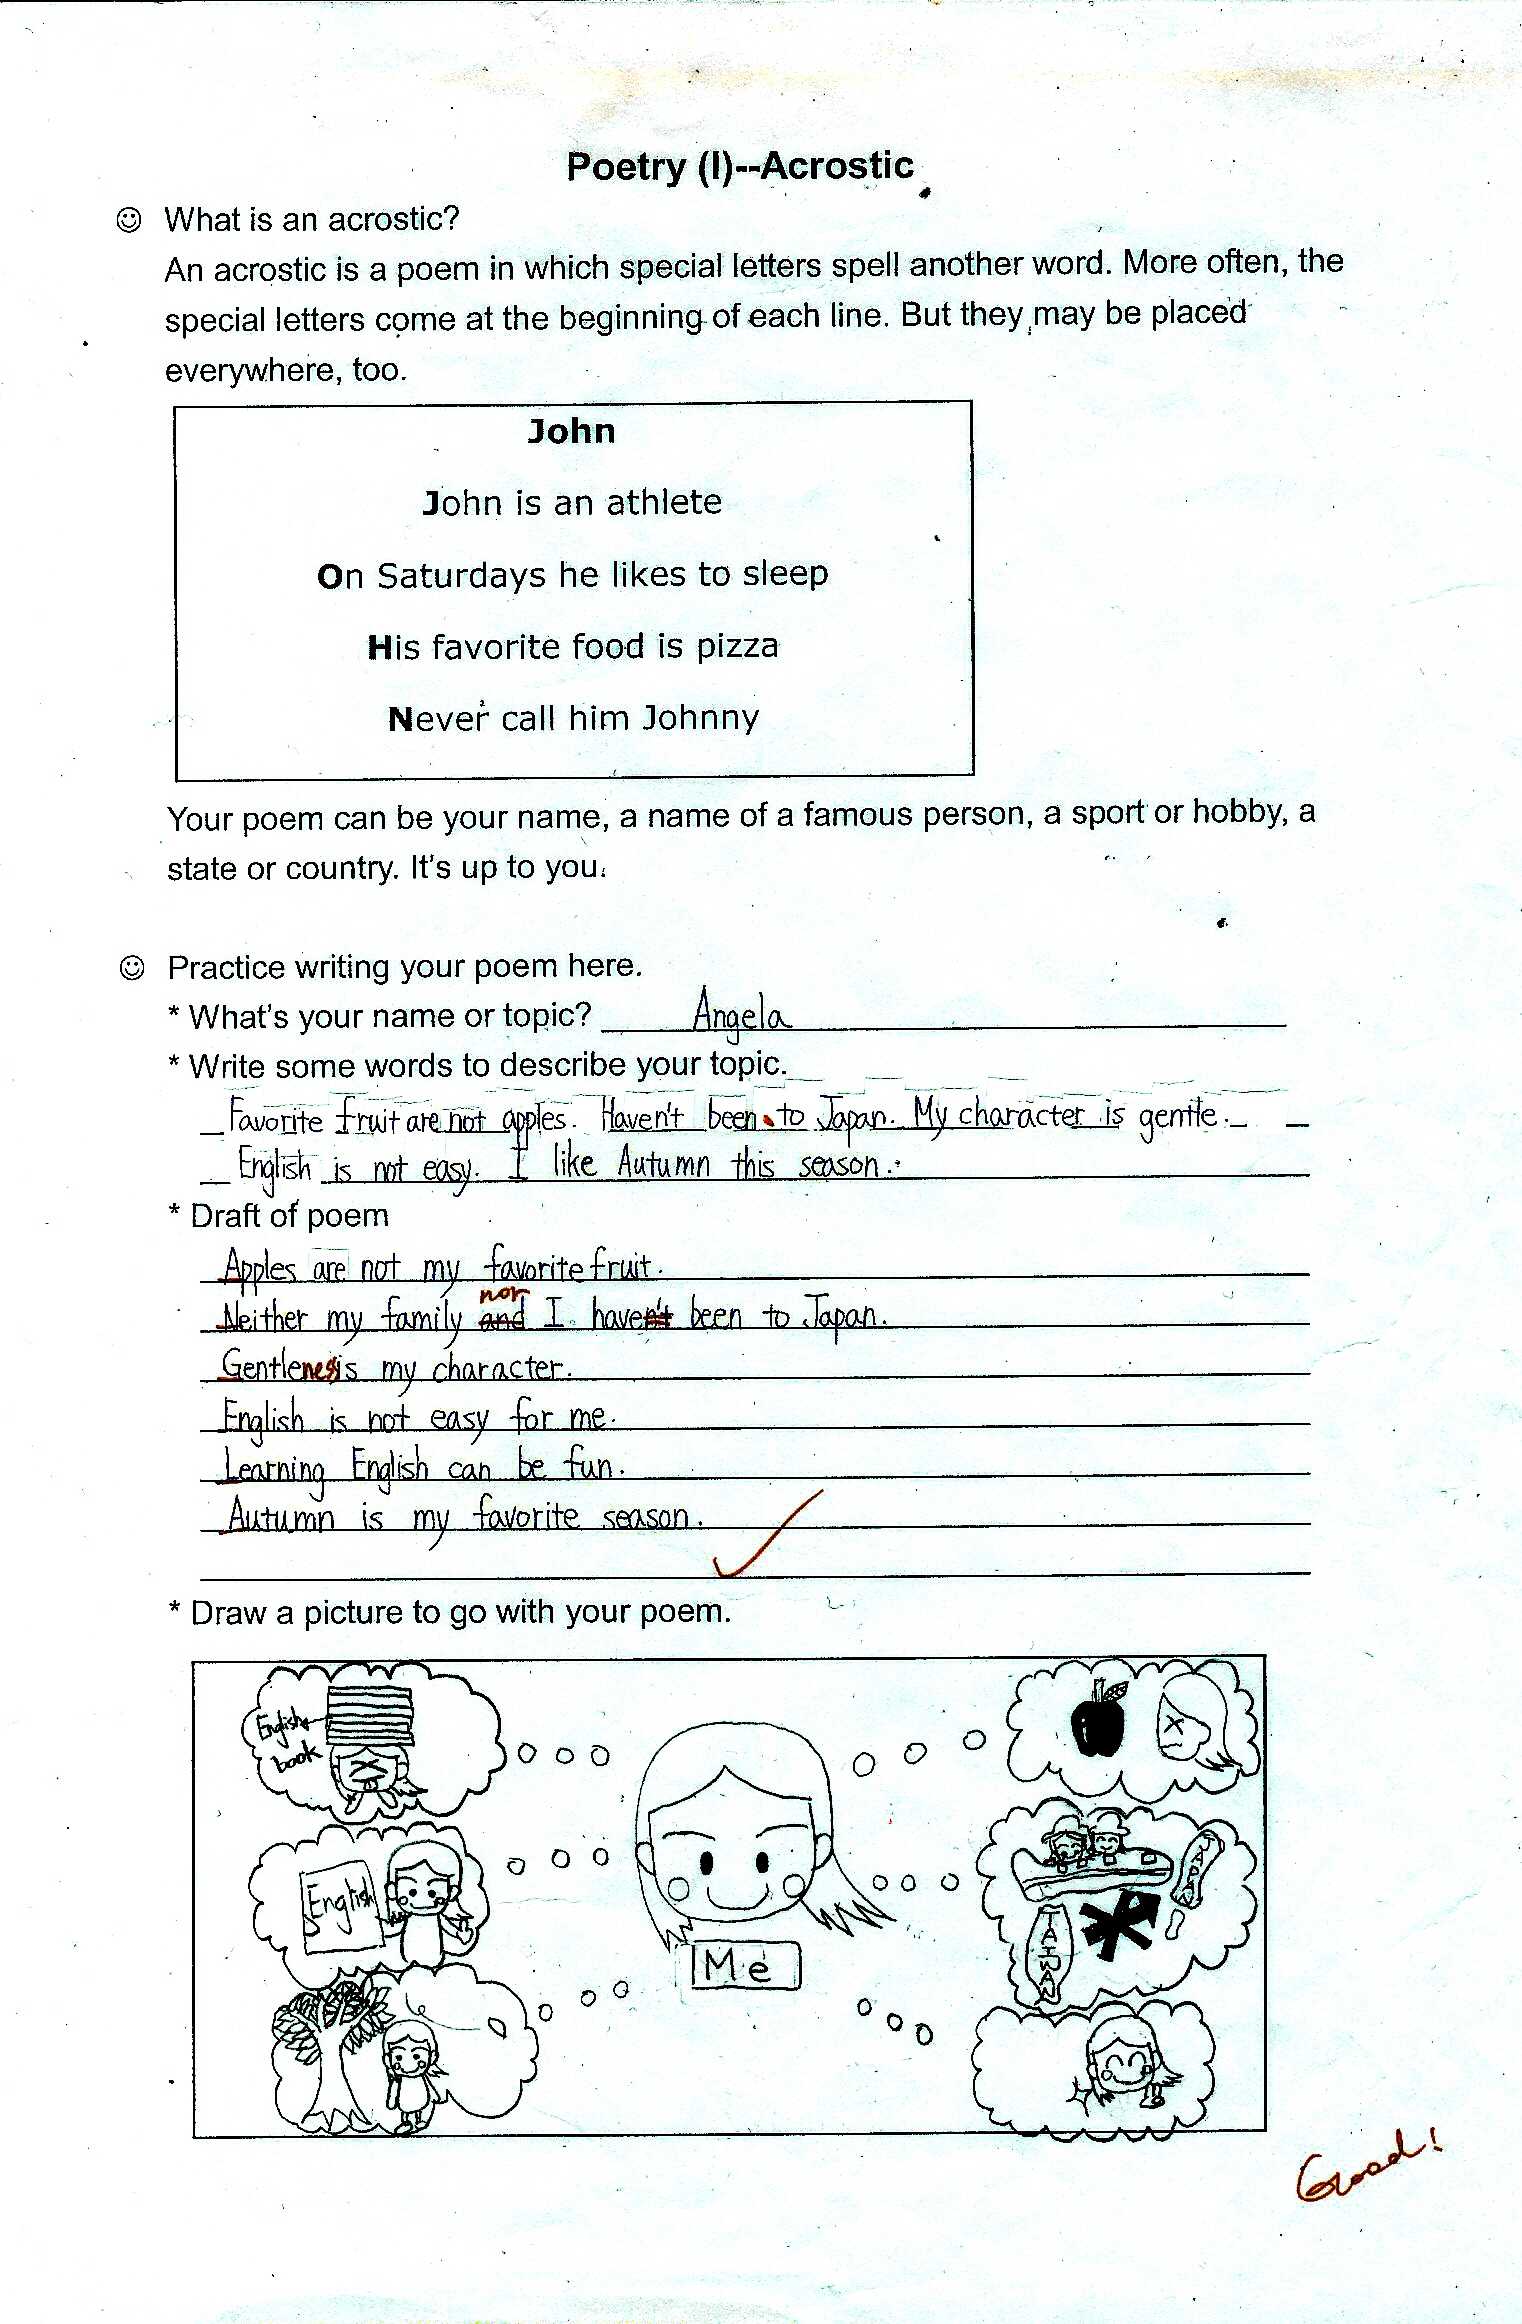 Poetry (I)--Acrostic
☺ What is an acrostic?
An acrostic is a poem in which special letters spell another word. More often, the
special letters come at the beginning of each line. But they may be placed
everywhere, too.
John
John is an athlete
On Saturdays he likes to sleep
His favorite food is pizza
Never call him Johnny
Your poem can be your name, a name of a famous person, a sport or hobby, a
state or country. It's up to you.
☺ Practice writing your poem here.
* What's your name or topic? Angela
* Write some words to describe your topic.
Favorite fruit are not apples. Haven't been to Japan. My character is gentle.
English is not easy. I like Autumn this season.
* Draft of poem
Apples are not my favorite fruit.
nor
Neither my family and I haven't been to Japan.
Gentleness is my character.
English is not easy for me.
Learning English can be fun.
Autumn is my favorite season.
* Draw a picture to go with your poem.
English
book
English
Me
JAPAN
TAIWAN
Good!